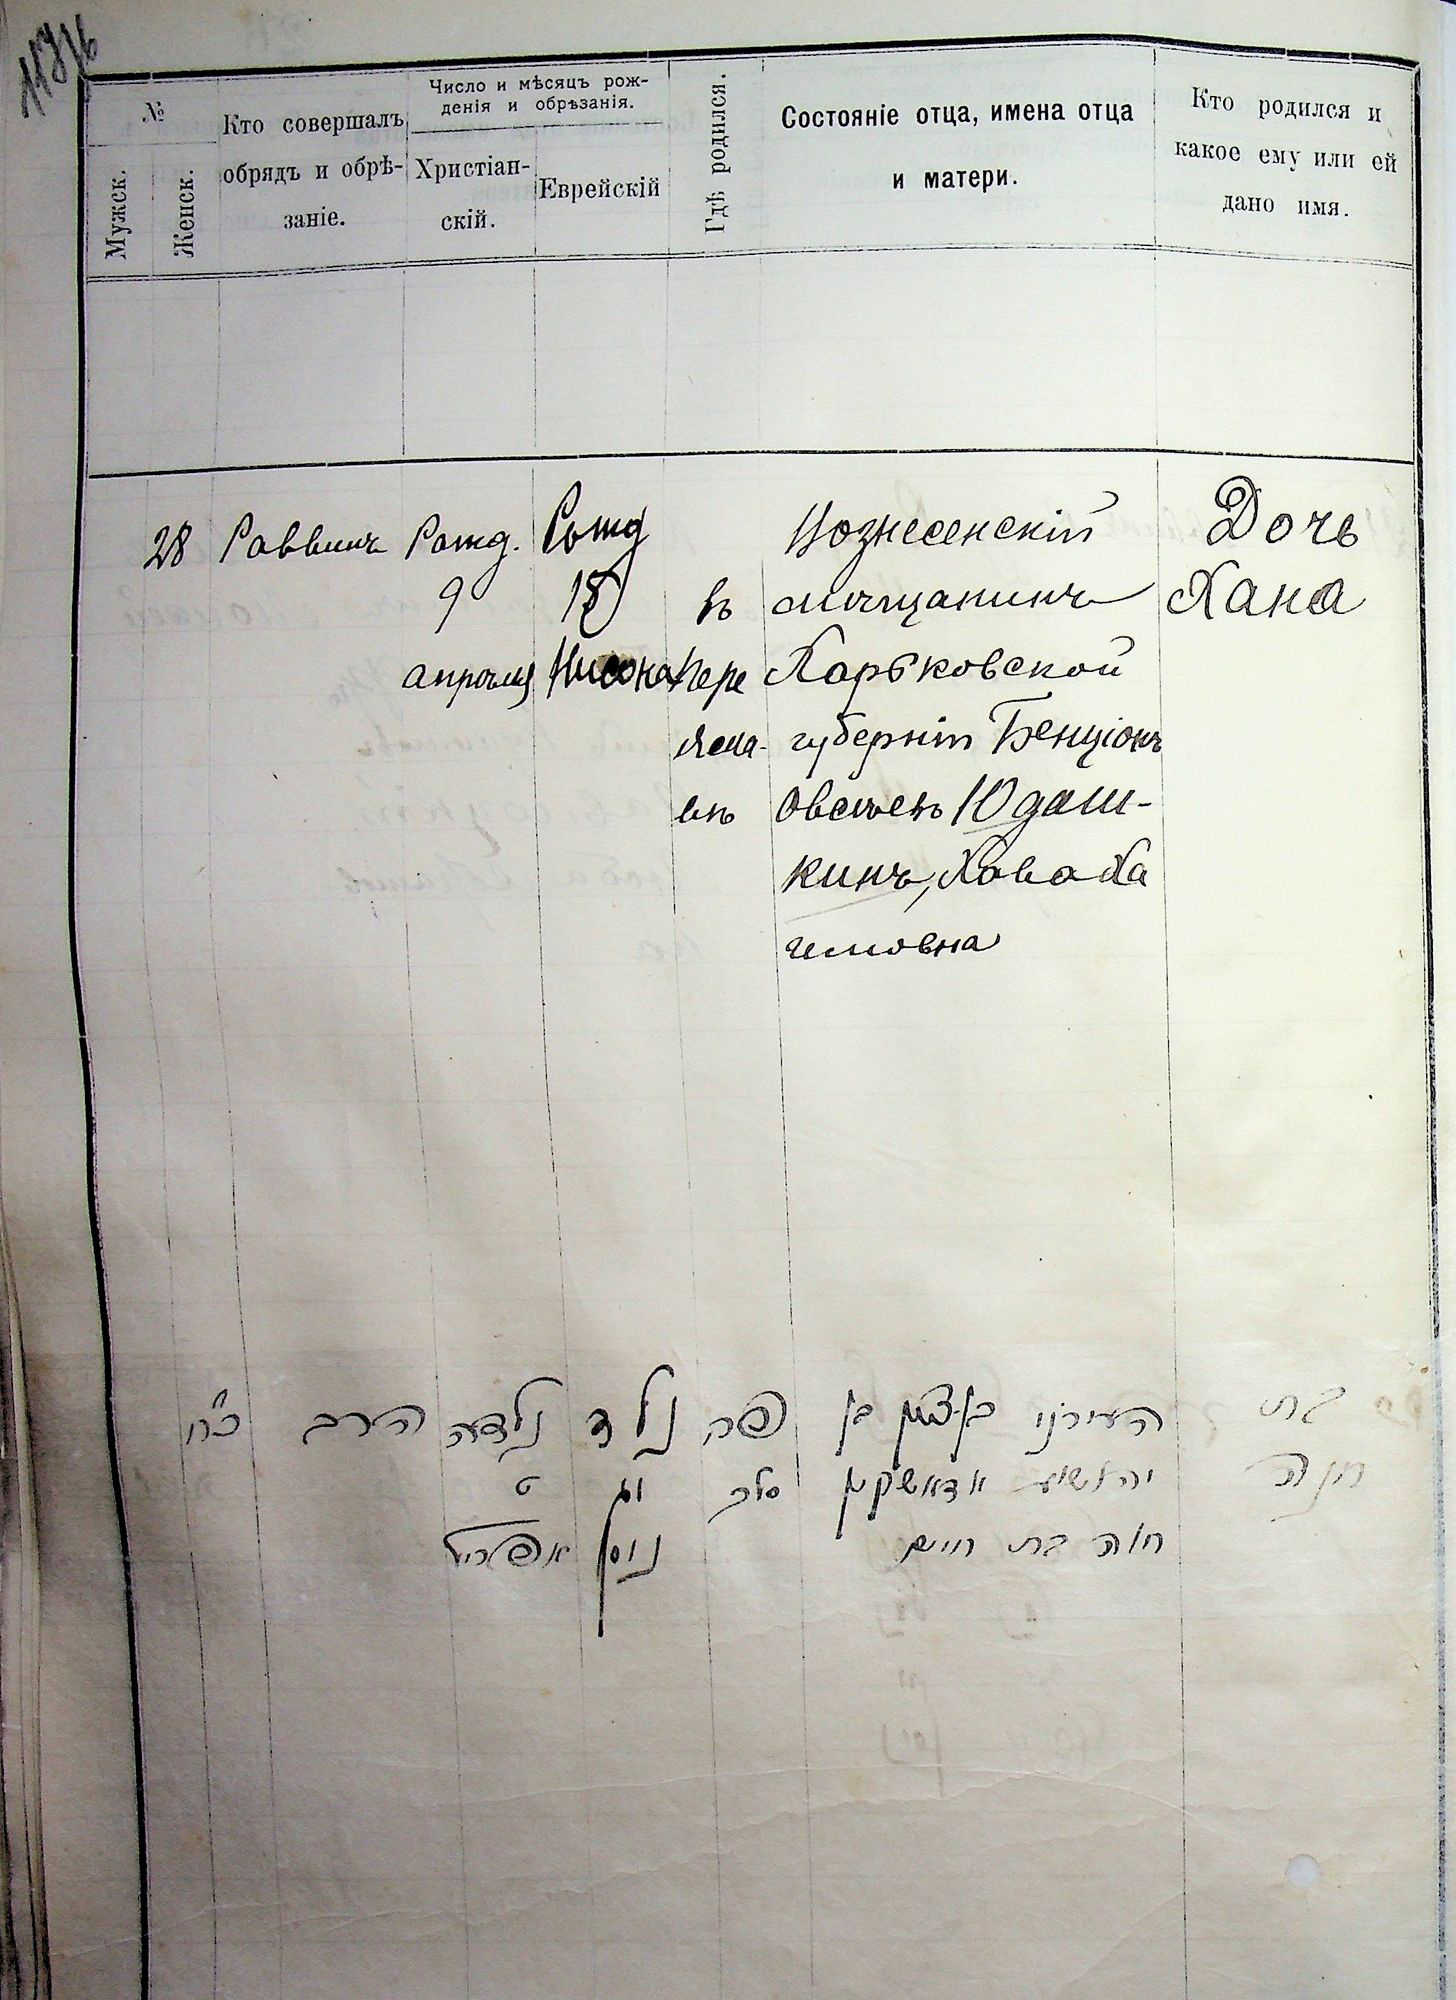 №
Мужск.
Женск.
Кто совершалъ
обрядъ и обрѣ-
заніе.
Число и мѣсяцъ рож-
денія и обрѣзанія.
Христіан-
скій.
Еврейскій
Гдѣ родился.
Состояніе отца, имена отца
и матери.
Кто родился и
какое ему или ей
дано имя.
28
Раввинъ
Рожд.
9
апрѣля
Рожд
18
Нисона
въ
Пере
ясла-
влѣ
Вознесенскій
мѣщанинъ
Харьковской
губерніи Бенціонъ
Овсѣевъ Юдаш-
кинъ, Хава Ха
имовна
Дочь
Хана
כ״ח
הרב
נולדה
ט
אפריל
נולד
ניסן
פה
העירוני בן ציון בן
יהושוע
חוה בת חיים
בת
חנה